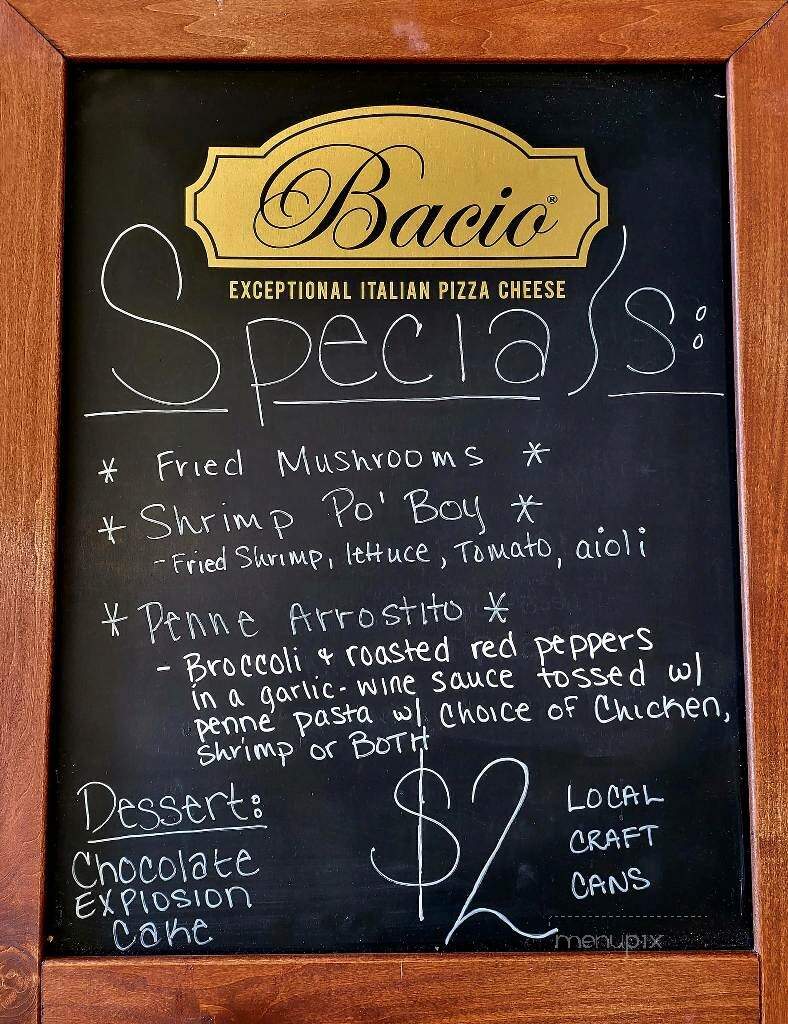 Bacio®
EXCEPTIONAL ITALIAN PIZZA CHEESE
Specials:
* Fried Mushrooms *
* Shrimp Po' Boy *
- Fried Shrimp, lettuce, Tomato, aioli
* Penne Arrostito *
- Broccoli + roasted red peppers
in a garlic-wine sauce tossed w/
penne pasta w/ choice of Chicken,
shrimp or BOTH
Dessert:
Chocolate
Explosion
Cake
$2
LOCAL
CRAFT
CANS
menupix